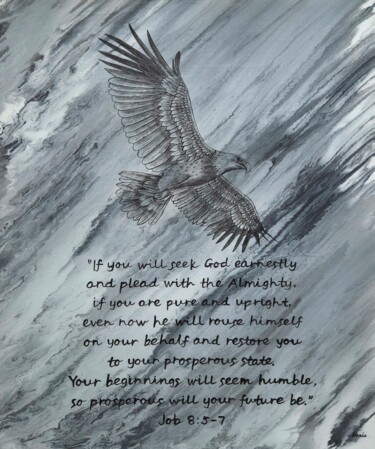 "If you will seek God earnestly
and plead with the Almighty,
if you are pure and upright,
even now he will rouse himself
on your behalf and restore you
to your prosperous state.
Your beginnings will seem humble,
so prosperous will your future be."
Job 8:5-7